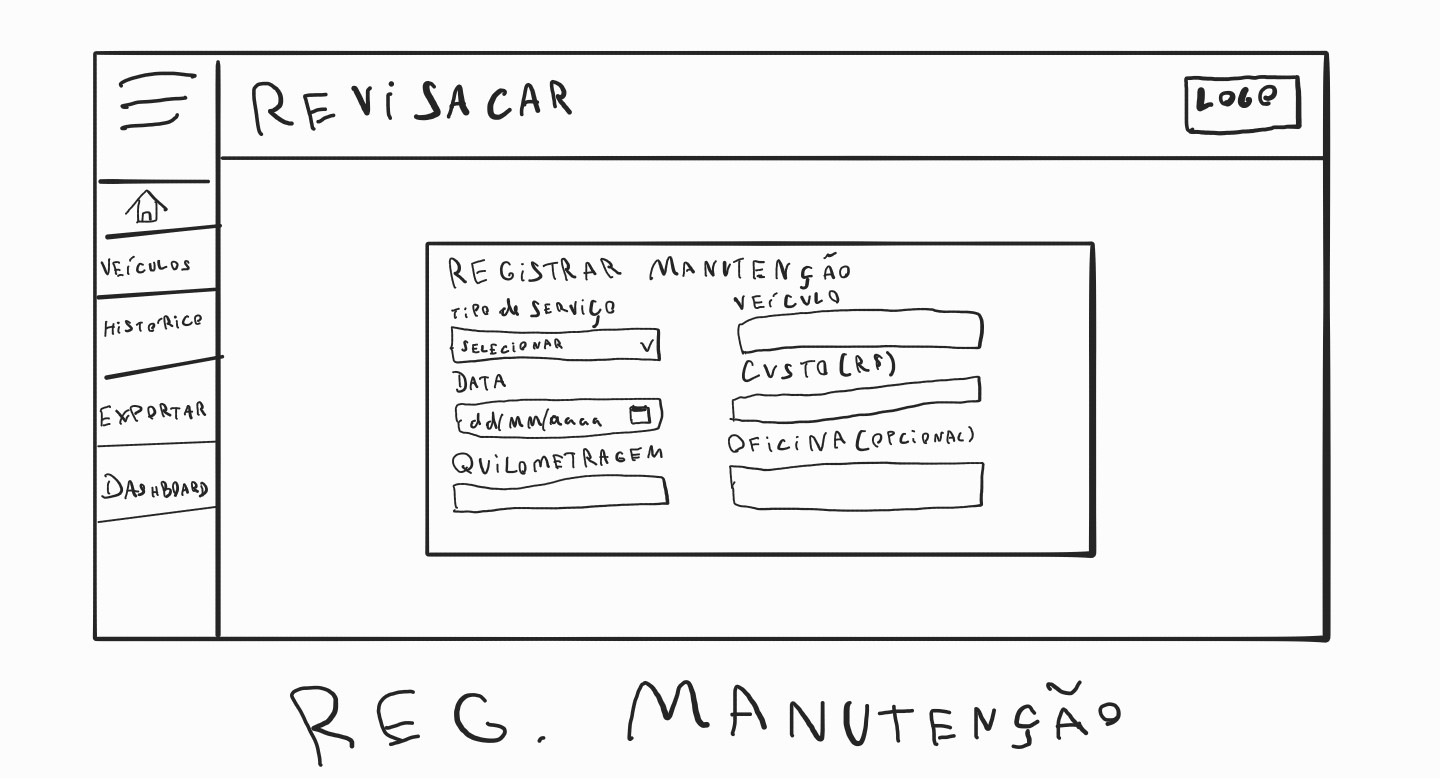 REVISACAR
LOGO
VEÍCULOS
HISTÓRICO
EXPORTAR
DASHBOARD
REGISTRAR MANUTENÇÃO
TIPO de SERVIÇO
SELECIONAR
DATA
dd/mm/aaaa
QUILOMETRAGEM
VEÍCULO
CUSTO (R$)
OFICINA (OPCIONAL)
REG. MANUTENÇÃO